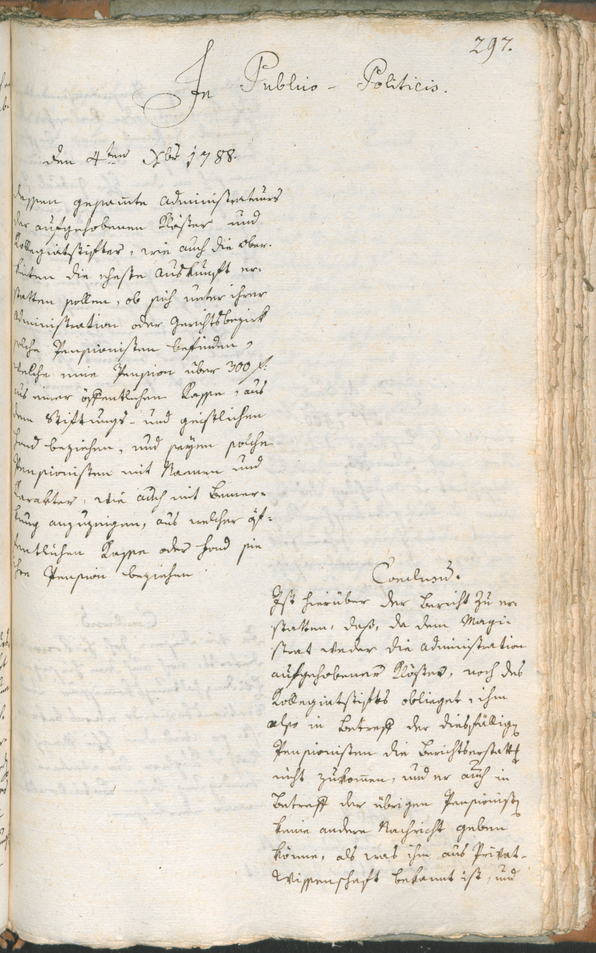 297.
In Publico-Politicis.
den 4ten Xbr 1788.
dessen gesamte Administrateurs
der aufgehobenen Klöster und
Kollegiatstifter, wie auch die Ober-
die eheste Auskunft er-
statten sollen, ob sich unter ihrer
Administration oder Gerichtsbezirk
solche Pensionisten befinden,
welche eine Pension über 300 f.
aus einer öffentlichen Kasse, aus
dem Stiftungs- und geistlichen
Fond beziehen, und seyen solche
Pensionisten mit Namen und
Karakter, wie auch mit Bemer-
kung anzuzeigen, aus welcher öf-
fentlichen Kasse oder Fond sie
ihre Pension beziehen.
Conclusum.
Ist hierüber der Bericht zu er-
statten, daß, da dem Magi-
strat weder die Administration
aufgehobener Klöster, noch des
Kollegiatstifts oblieget, ihm
also in Betreff der diesfällig
Pensionisten die Berichtserstatt
nicht zukommen, und er auch in
Betreff der übrigen Pensionist
keine andere Nachricht geben
könne, als was ihm aus Privat-
Wissenschaft bekannt ist, und